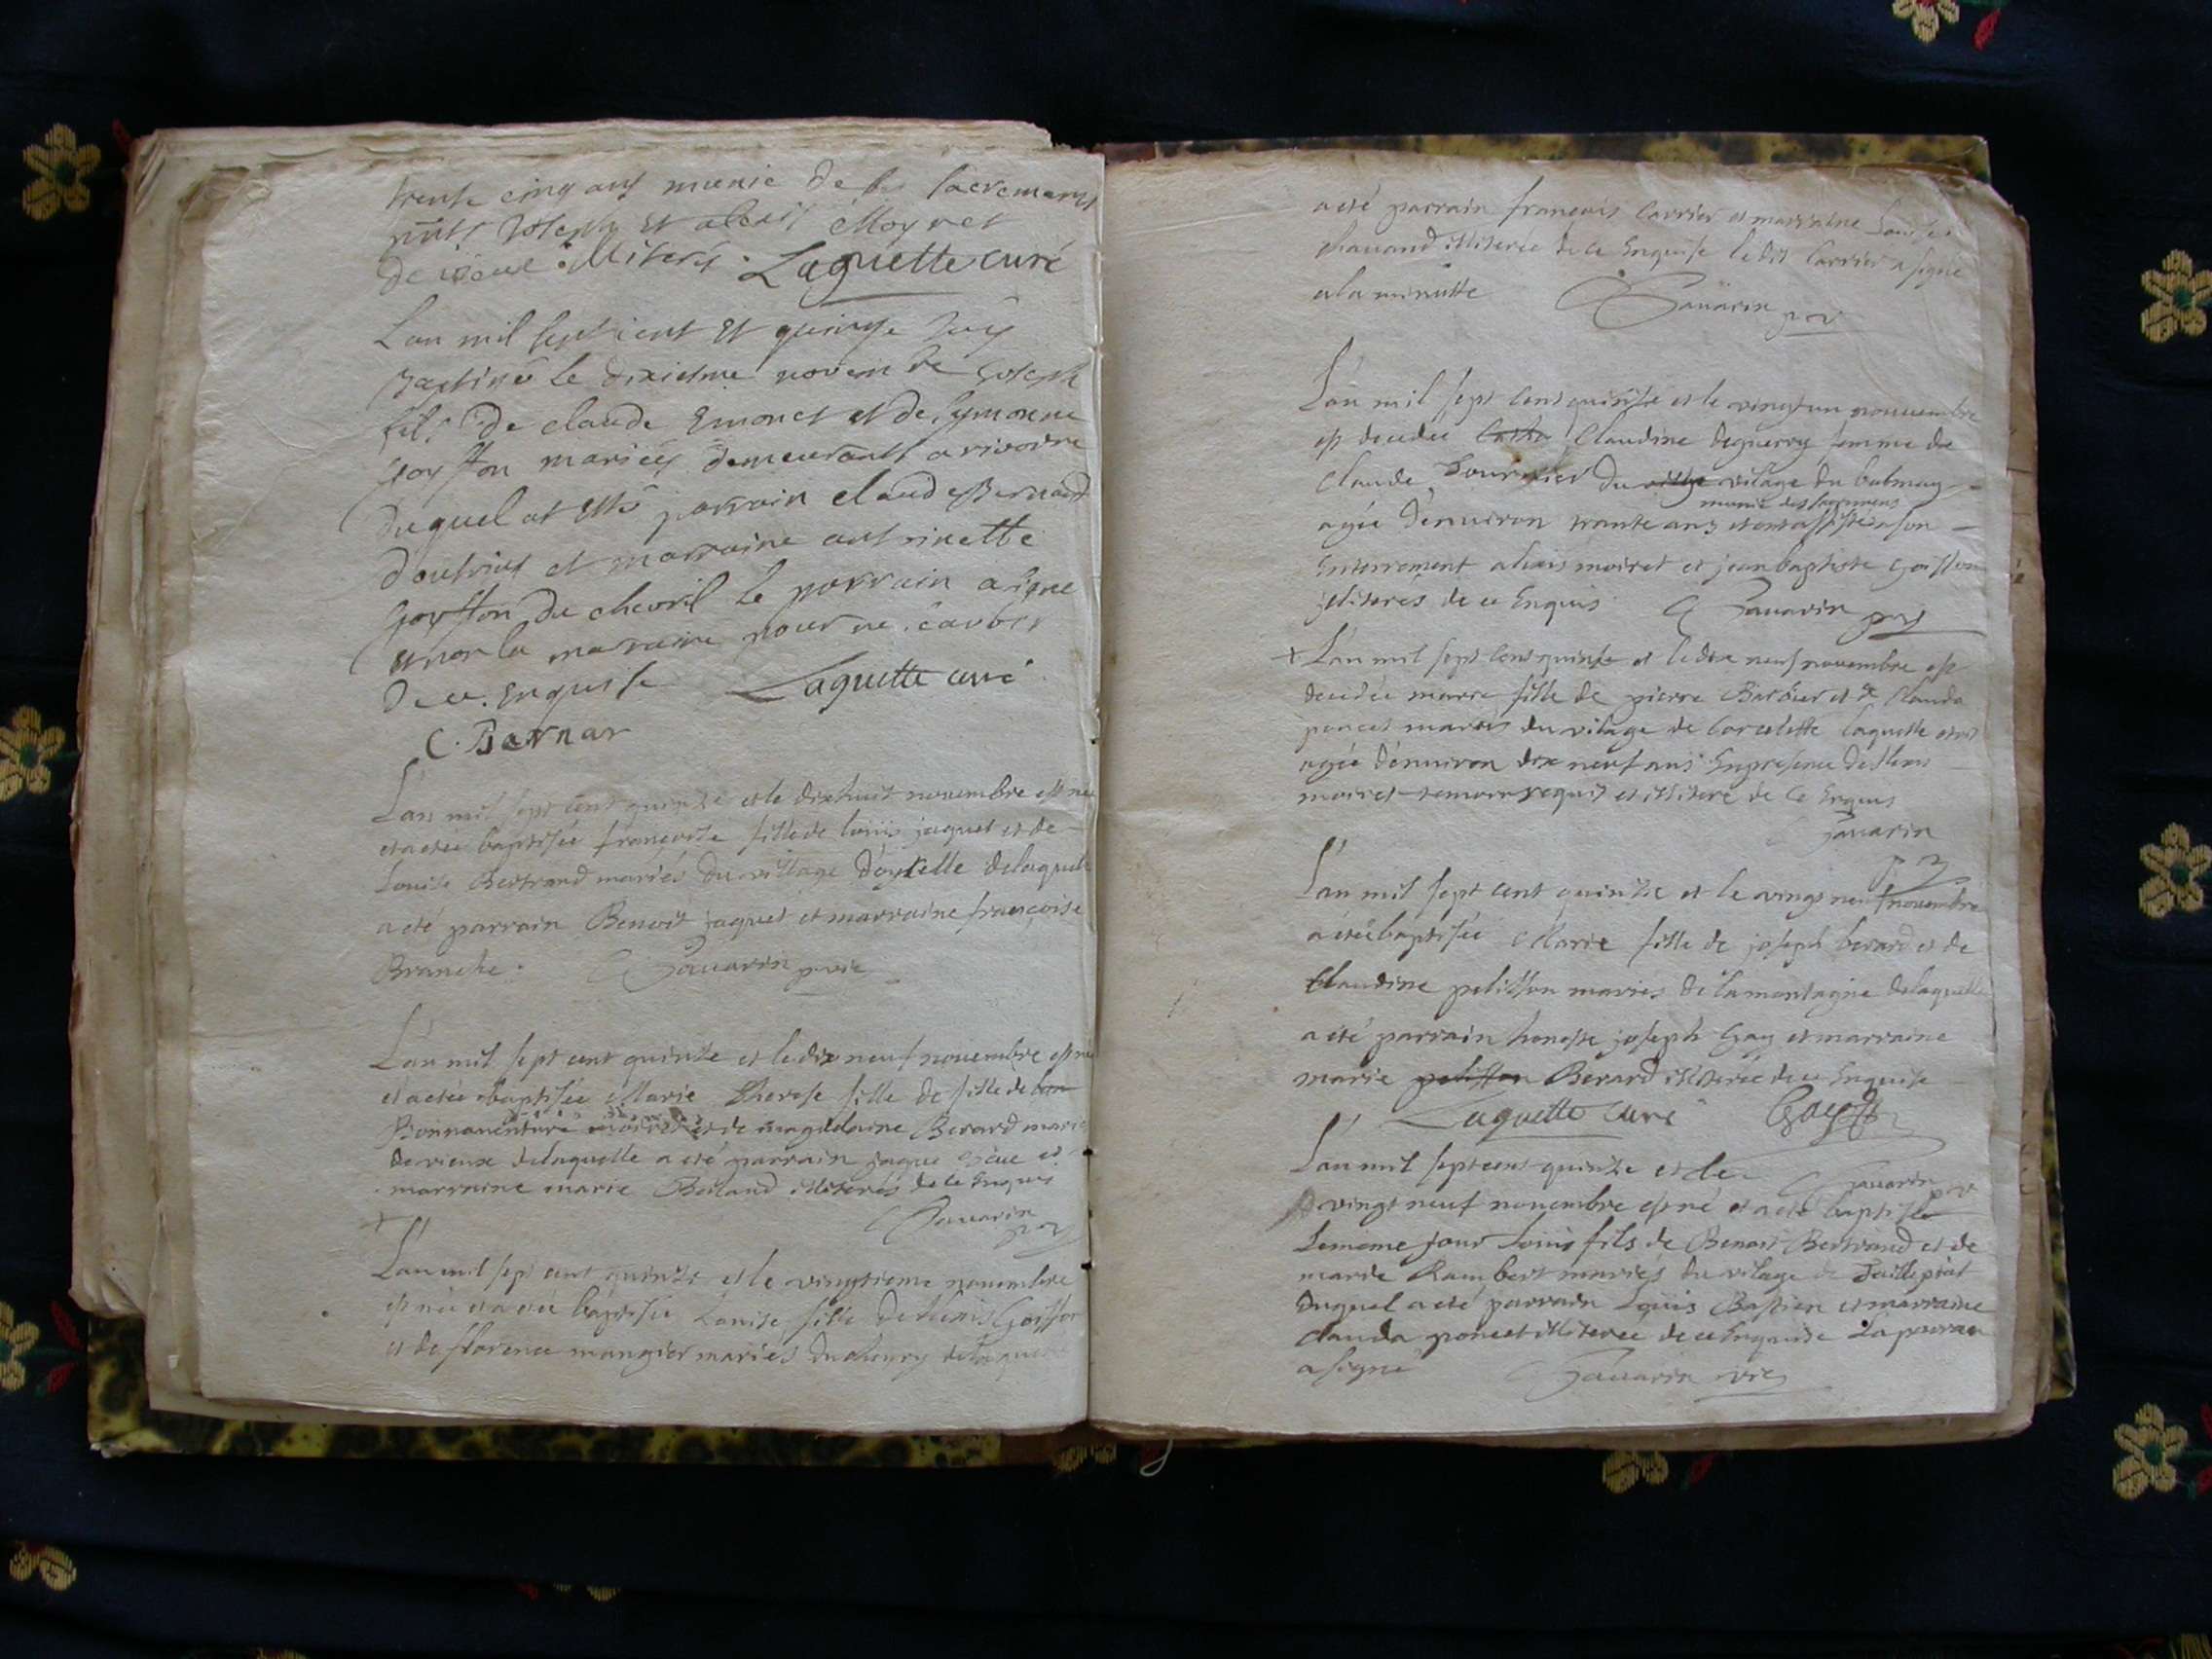 trente cinq ans munie de ses sacremants
Joseph et alexis Moyret
de illiterés. Laguette curé
L'an mil sept cent et quinze
baptisé le dixiesme novem de Joseph
fils de claude Emonet et de symonne
Goyffon mariés demeurants a rivoire
duquel at esté parrain claude Bernard
d'outriaz et marraine anthinette
Goyffon du chevril le parrain a signe
et non la marraine pour ne scavoir
de ce enquise Laguette curé
C. Bernar
L'an mil sept cent quinze et le dixhuit novembre est née
et a étée baptisée francoise fille de louis jaquet et de
Louise Bertrand mariés du village d'oyselle delaquelle
a eté parrain Benoit jaquet et marraine françoise
Branche. Savarin
L'an mil sept cent quinze et le dix neuf novembre est née
et a etée baptisée Marie Therese fille de fille de bon
Bonnaventure moiret et de magdelaine Berard mariés
de vieux delaquelle a eté parrain jaque et
marraine marie illiterés de ce enquis
Savarin
+
L'an mil sept cent quinze et le vingtieme novembre
est née et a etée baptisée Louise fille de Alexis Goiffon
et de florence mangier mariés du delaquelle
a eté parrain françois Carrier et marraine Louise
chavand illiterée de ce enquise le dit Carrier a signé
a la minutte Savarin
L'an mil sept cent quinze et le vingt un novembre
est decedee Claudine deguerry femme de
Claude du vilage du balmay
munie des sacremens
agée d'environ trante ans et ont assisté a son
enterrement alexis moiret et jean baptiste goiffon
illiterés de ce enquis Savarin
+ L'an mil sept cent quinze et le dix neuf novembre est
decedée marie fille de pierre et de Clauda
poncet mariés du vilage de Corcelette laquelle etoit
agée d'environ dix neuf ans en presence de Alexis
moiret temoin requis et illiteré de ce enquis
Savarin
L'an mil sept cent quinze et le vingt neuf novembre
a étée baptisée Marie fille de joseph berard et de
Claudine pelisson mariés de la montagne delaquelle
a eté parrain honeste joseph Gay et marraine
marie pelisson Berard illiterée de ce enquise
Laguette curé Gay
L'an mil sept cens quinze et le Savarin
vingt neuf novembre est né et a eté baptisé
le meme jour louis fils de Benoit Bertrand et de
marie Rambert mariés du vilage de
duquel a eté parrain Louis Bastien et marraine
clauda poncet illiterée de ce enquise La parrain
a signé Savarin vic